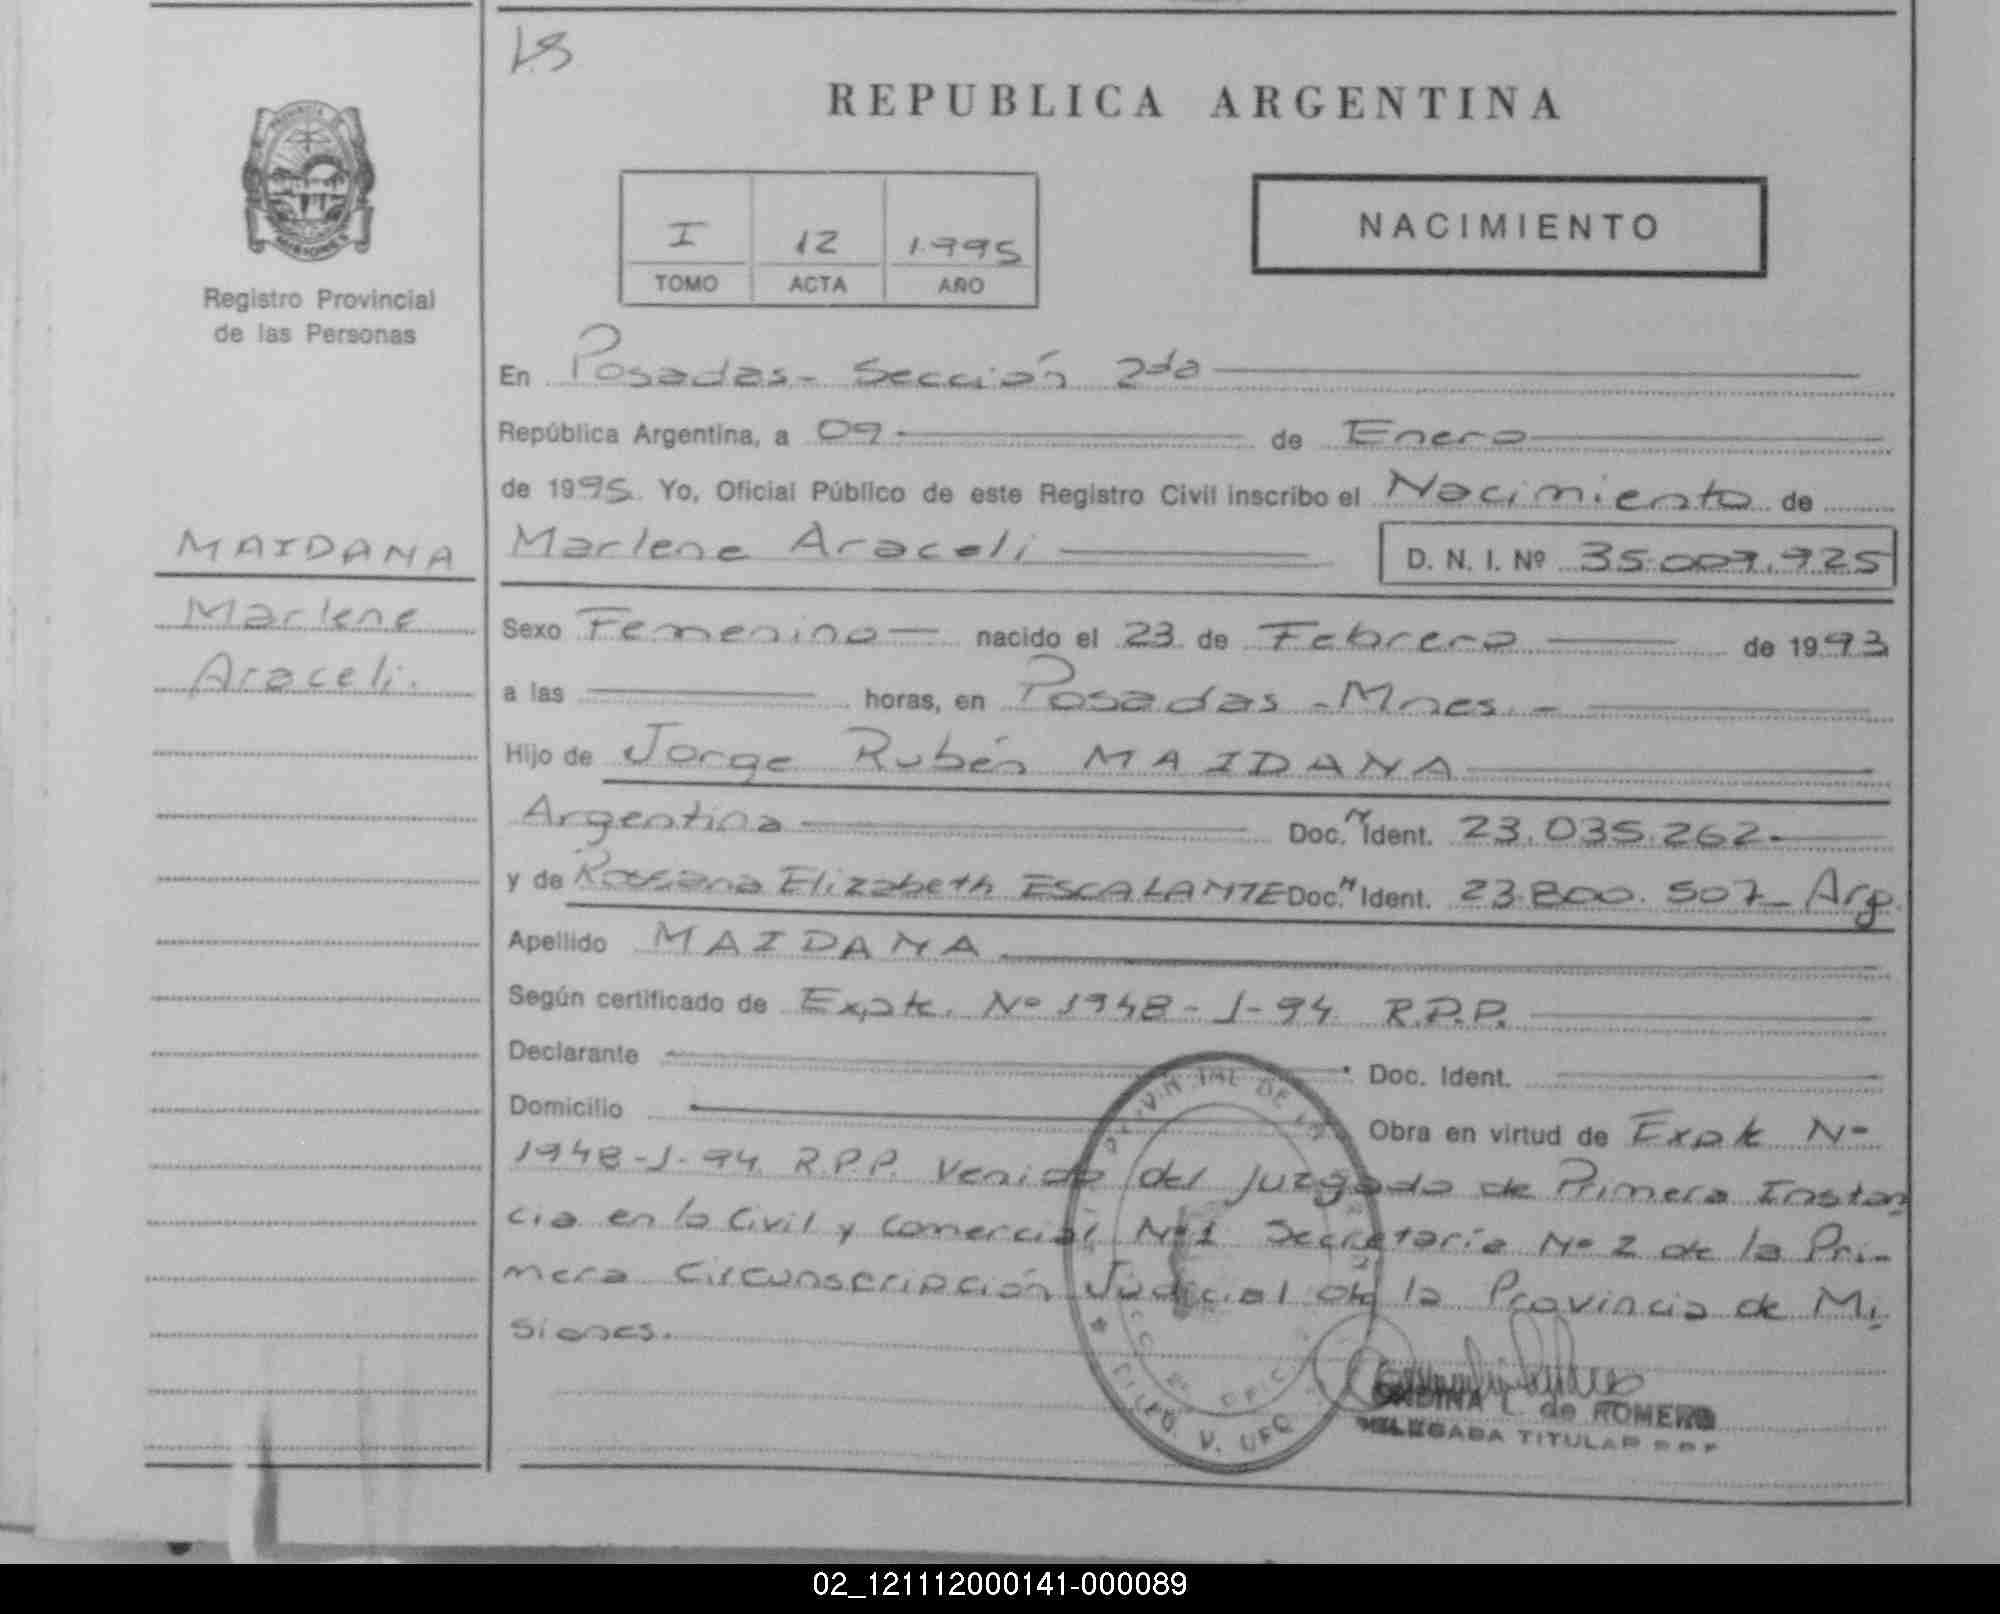 LS
REPUBLICA ARGENTINA
I 12 1.995
TOMO ACTA AÑO
NACIMIENTO
Registro Provincial
de las Personas
En Posadas - Sección 2da
República Argentina, a 09 de Enero
de 1995. Yo, Oficial Público de este Registro Civil inscribo el Nacimiento de
MAIDANA
Marlene Araceli D. N. I. Nº 35.007.925
Marlene
Sexo Femenino nacido el 23 de Febrero de 1993
Araceli.
a las horas, en Posadas - Mnes. -
Hijo de Jorge Rubén MAIDANA
Argentina Doc. N Ident. 23.035.262-
y de Rossana Elizabeth ESCALANTE Doc. N Ident. 23.800.507_ Arg.
Apellido MAIDANA
Según certificado de Expte. Nº 1948-J-94 R.P.P.
Declarante Doc. Ident.
Domicilio Obra en virtud de Expte Nº
1948-J-94 R.P.P. Venido del Juzgado de Primera Instan
cia en lo Civil y Comercial Nº 1 Secretaría Nº 2 de la Pri-
mera Circunscripción Judicial de la Provincia de Mi
siones.
ONDINA L. de ROMERO
DELEGADA TITULAR R.P.P
02_121112000141-000089